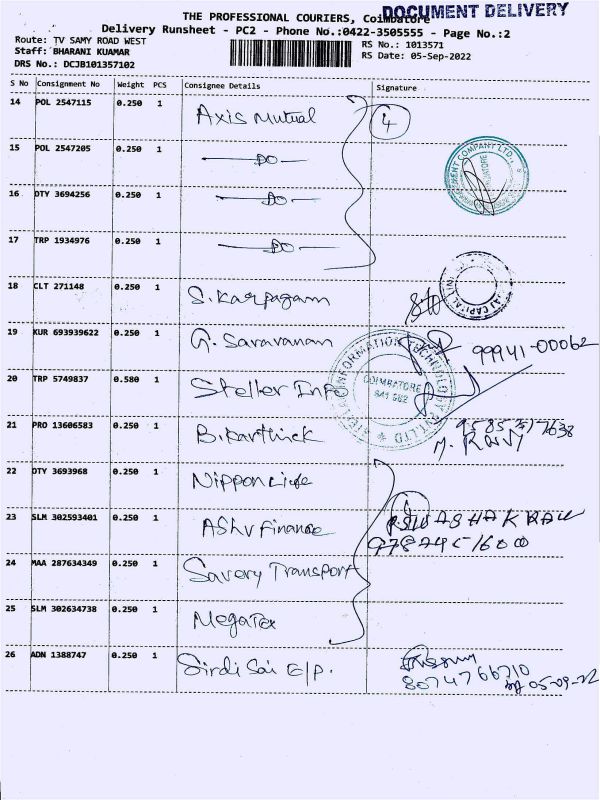 DOCUMENT DELIVERY
THE PROFESSIONAL COURIERS, Coimbatore
Delivery Runsheet - PC2 - Phone No.:0422-3505555 - Page No.:2
Route: TV SAMY ROAD WEST
RS No.: 1013571
Staff: BHARANI KUAMAR
RS Date: 05-Sep-2022
DRS No.: DCJB101357102
S No Consignment No Weight PCS Consignee Details Signature
14 POL 2547115 0.250 1 Axis Mutual 4
15 POL 2547205 0.250 1 — DO —
16 DTY 3694256 0.250 1 — DO —
17 TRP 1934976 0.250 1 — DO —
18 CLT 271148 0.250 1 S. Karpagam
19 KUR 693939622 0.250 1 G. Saravanam 99941-00062
20 TRP 5749837 0.580 1 Steller Info
INFORMATION TECHNOLOGY
COIMBATORE
641 002
21 PRO 13606583 0.250 1 B. Karthick
M. RAVI
22 DTY 3693968 0.250 1 Nippon Life
23 SLM 302593401 0.250 1 Ashv Finance
24 MAA 287634349 0.250 1 Savery Transport
25 SLM 302634738 0.250 1 Megatex
26 ADN 1388747 0.250 1 Sirdi Sai E/p.
8074766710
05-09-22